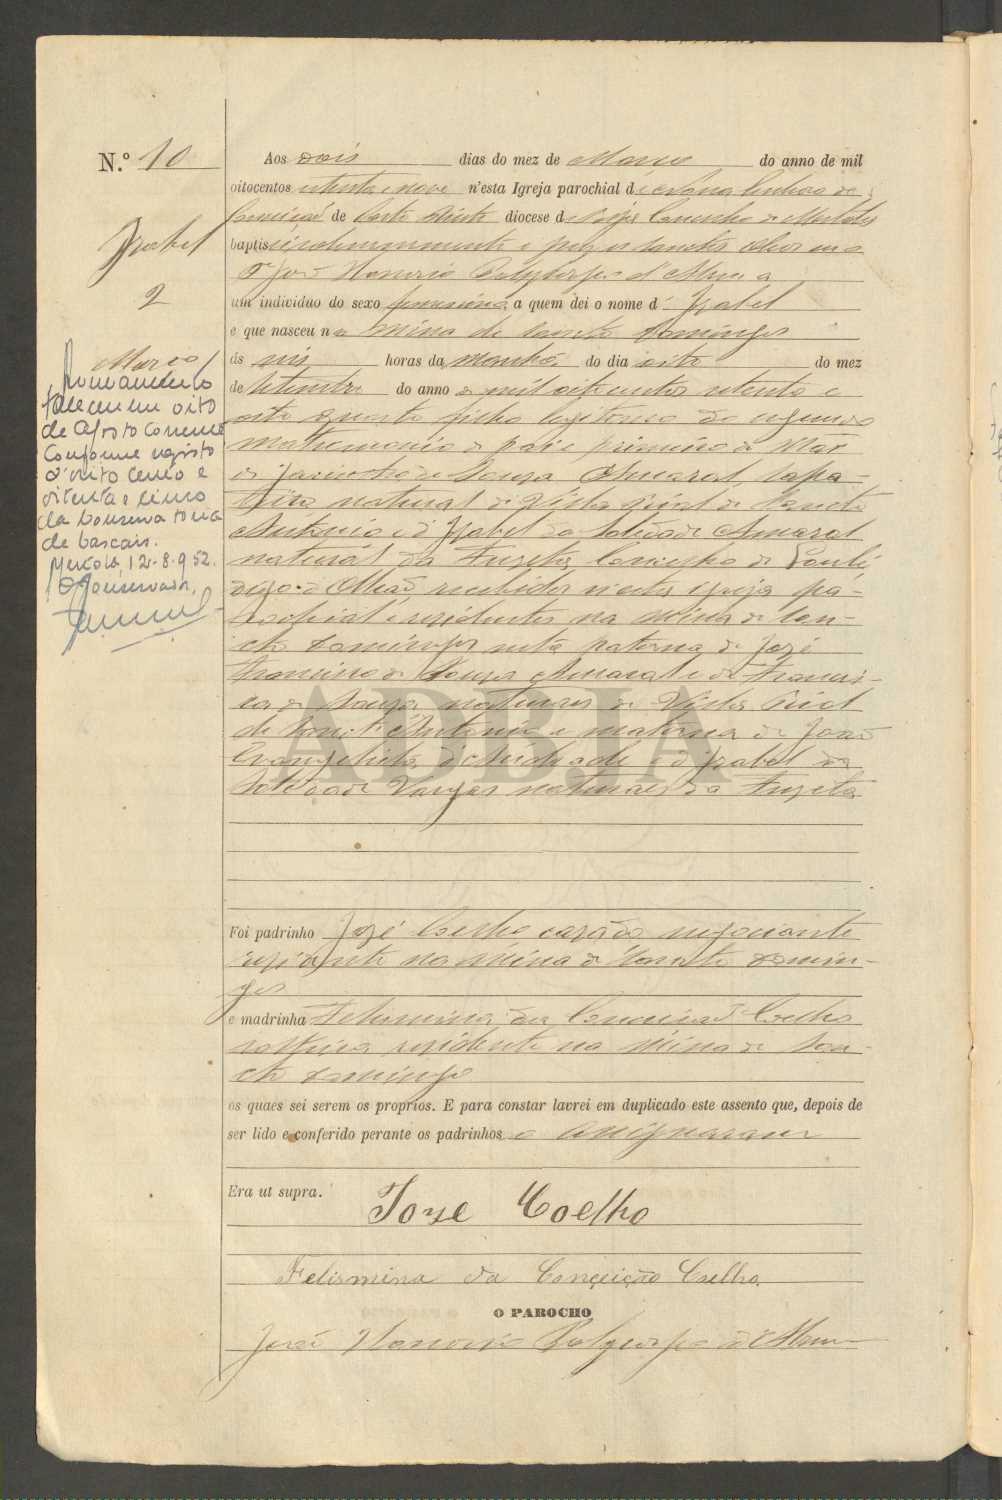 N.º 10
Izabel
2
Março
fallecem em oito
de Agosto corrente
Conforme registo
oito cento e
oitenta e cinco
da Conservatoria
de Cascais.
Mertola, 12-8-952.
O Conservador,
Aos dois dias do mez de Março do anno de mil
oitocentos oitenta e nove n'esta Igreja parochial de Nossa Senhora da
Conceição de Corte do Pinto diocese de Beja, Concelho de Mertola
baptisei solemnemente e puz os sanctos oleos eu o
P.e José Honorio Polycarpo d'
um individuo do sexo feminino a quem dei o nome d' Izabel
e que nasceu na Mina de Sancto Domingos
ás seis horas da manhã do dia oito do mez
de Setembro do anno de mil oitocentos oitenta e
oito quarto filho legitimo do segundo
matrimonio do pai e primeiro da Mãe
de de Souza Amaral, sapa
teiro natural de Villa Real de Sancto
Antonio e d' Izabel da Soledade Amaral
natural da Fuzeta, Concelho de
d'Olhão, recebidos n'esta igreja pa-
rochial e residentes na Mina de San-
cto Domingos neta paterna de José
Francisco de Souza Amaral e de Francis-
ca de Souza naturaes de Villa Real
de Sancto Antonio e materna de João
Evangelista d'Andrade e d'Izabel da
Soledade Vargas naturaes da Fuzeta
Foi padrinho José Coelho casado negociante
residente na Mina de Sancto Domin-
gos
e madrinha Felismina da Conceição Coelho
solteira residente na Mina de San-
cto Domingos
os quaes sei serem os proprios. E para constar lavrei em duplicado este assento que, depois de
ser lido e conferido perante os padrinhos o assignaram
Era ut supra.
Joze Coelho
Felismina da Conçeição Coelho.
O PAROCHO
José Honorio Polycarpo d'
ADBJA